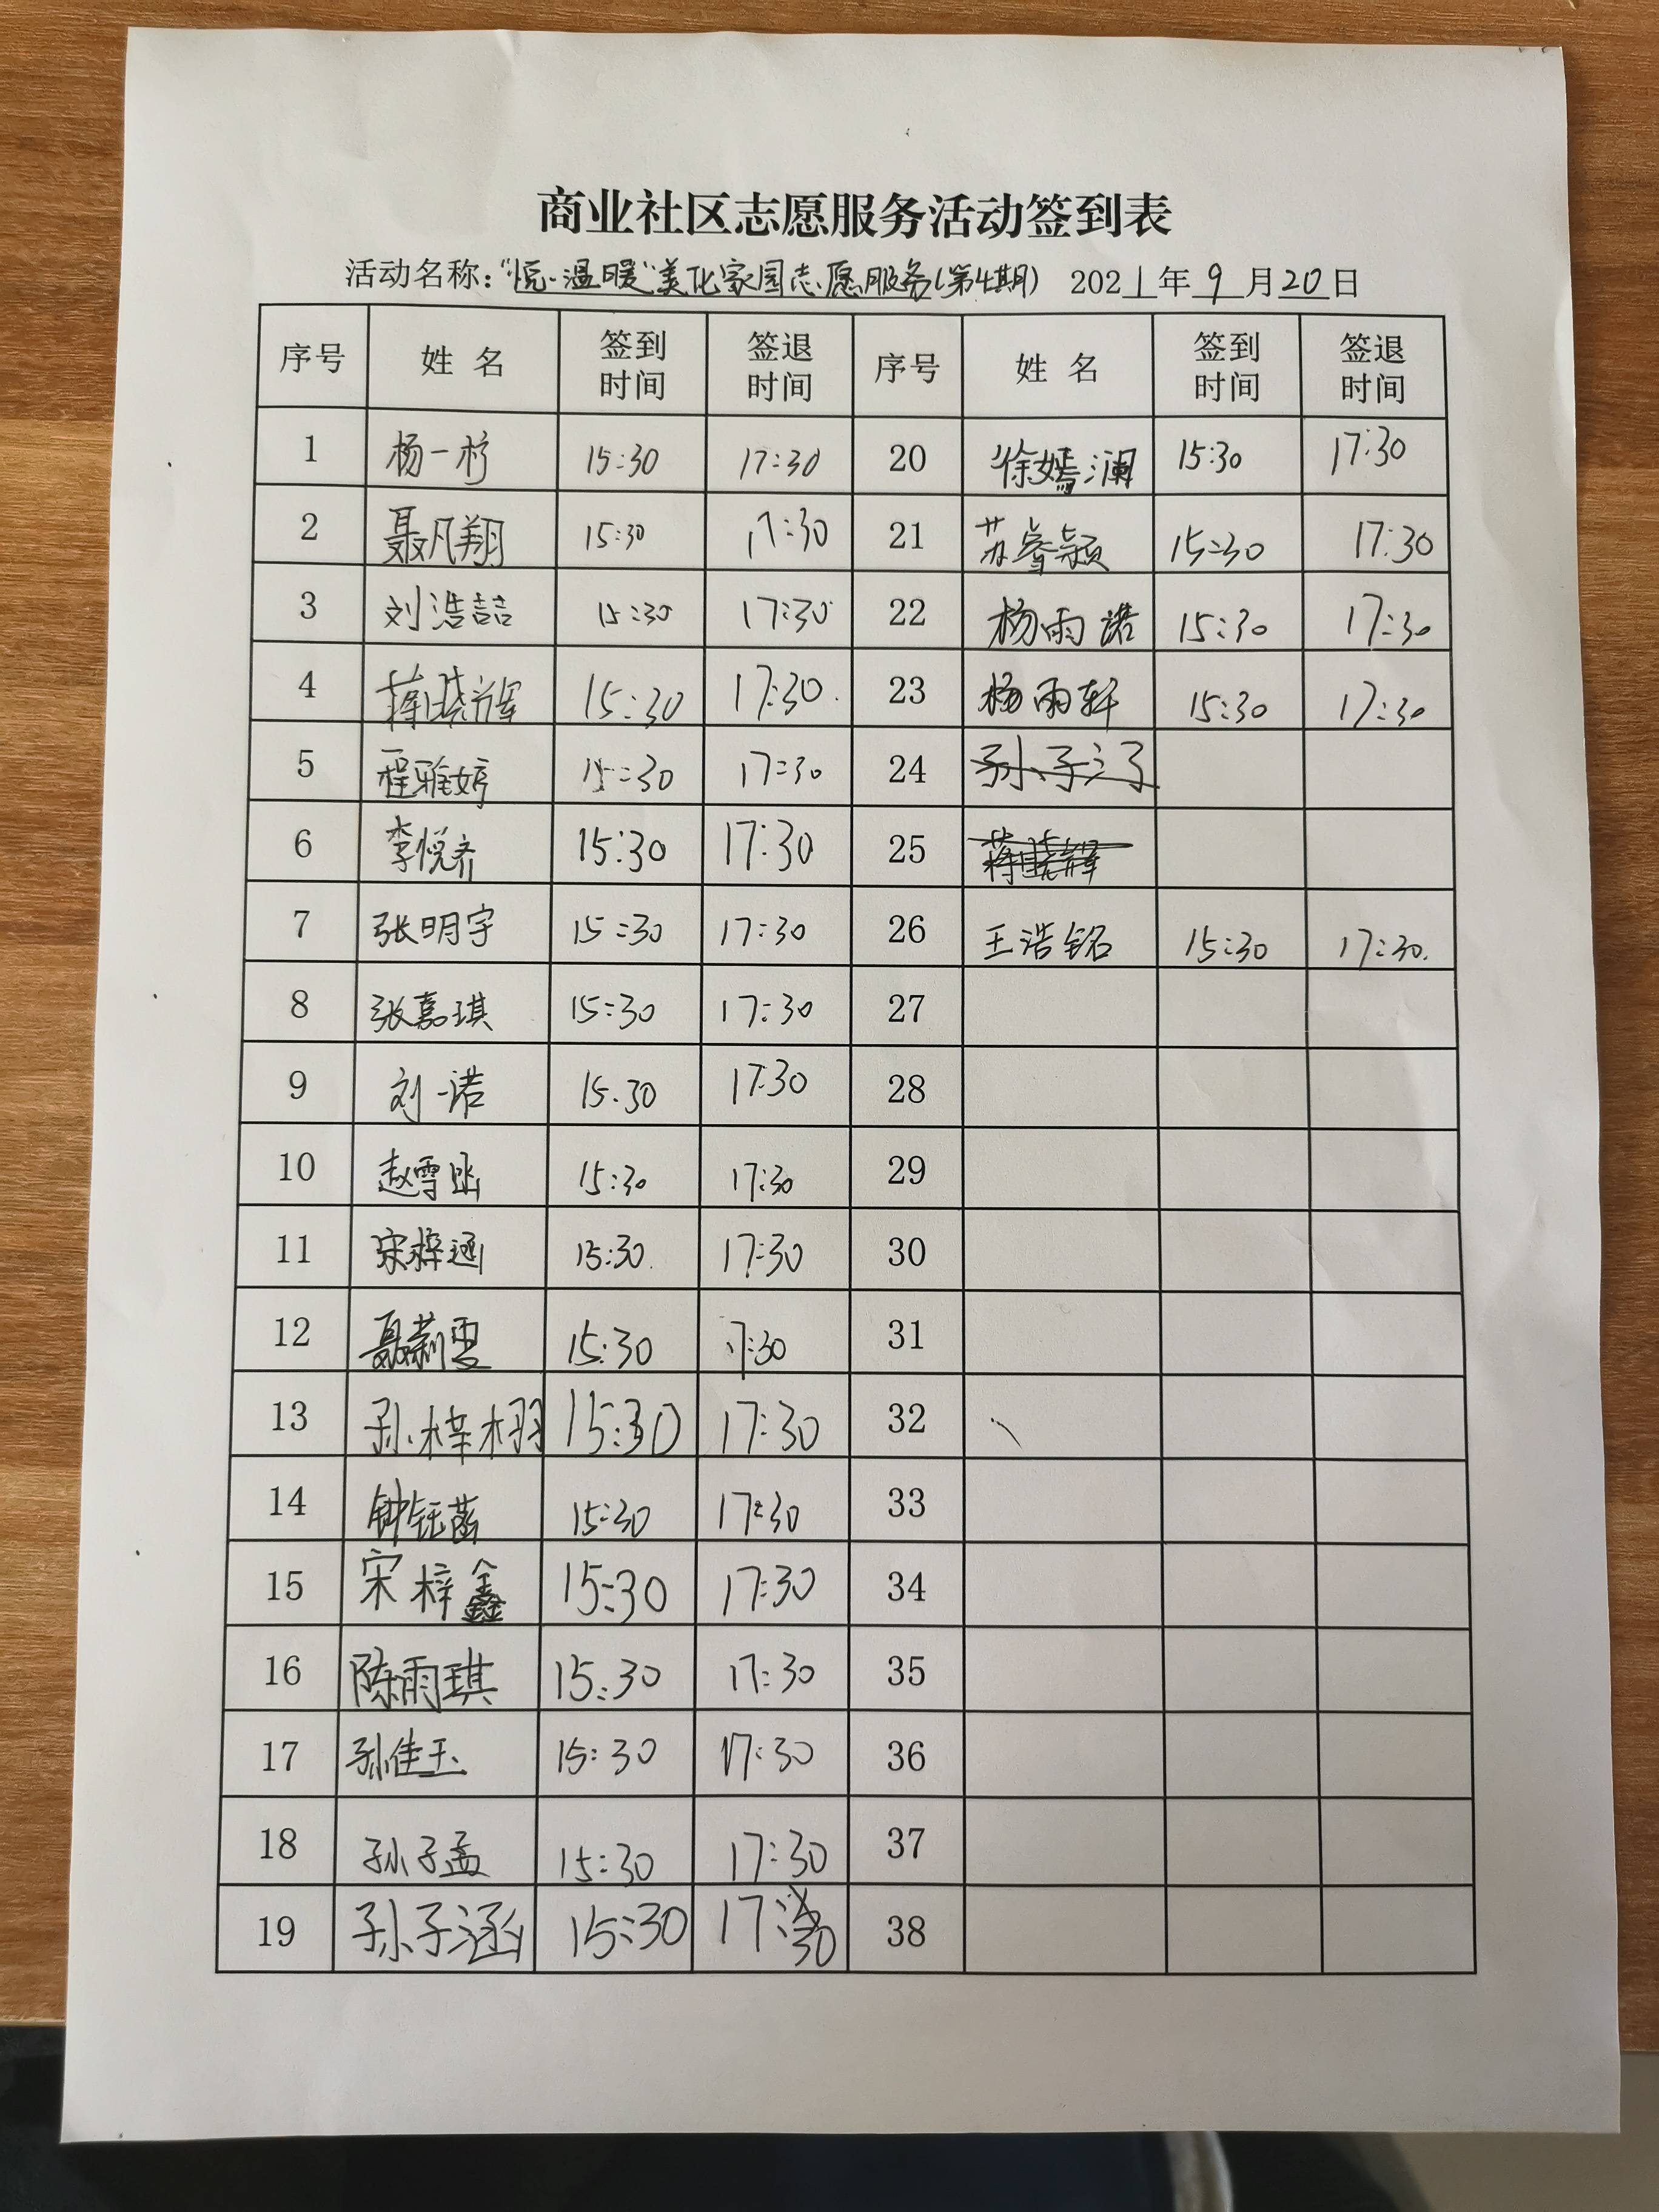 商业社区志愿服务活动签到表
活动名称:"悦·温暖"美化家园志愿服务(第4期) 2021年9月20日
序号 姓名 签到时间 签退时间 序号 姓名 签到时间 签退时间
1 杨一杉 15:30 17:30 20 徐嫣澜 15:30 17:30
2 聂凡翔 15:30 17:30 21 苏睿颖 15:30 17:30
3 刘浩喆 15:30 17:30 22 杨雨诺 15:30 17:30
4 蒋晓辉 15:30 17:30 23 杨雨轩 15:30 17:30
5 程雅婷 15:30 17:30 24
6 李悦齐 15:30 17:30 25
7 张明宇 15:30 17:30 26 王浩铭 15:30 17:30
8 张嘉琪 15:30 17:30 27
9 刘一诺 15:30 17:30 28
10 赵雪 15:30 17:30 29
11 宋梓涵 15:30 17:30 30
12 聂莉雯 15:30 17:30 31
13 孙梓栩 15:30 17:30 32
14 钟钰菡 15:30 17:30 33
15 宋梓鑫 15:30 17:30 34
16 陈雨琪 15:30 17:30 35
17 孙佳玉 15:30 17:30 36
18 孙子孟 15:30 17:30 37
19 孙子涵 15:30 17:30 38